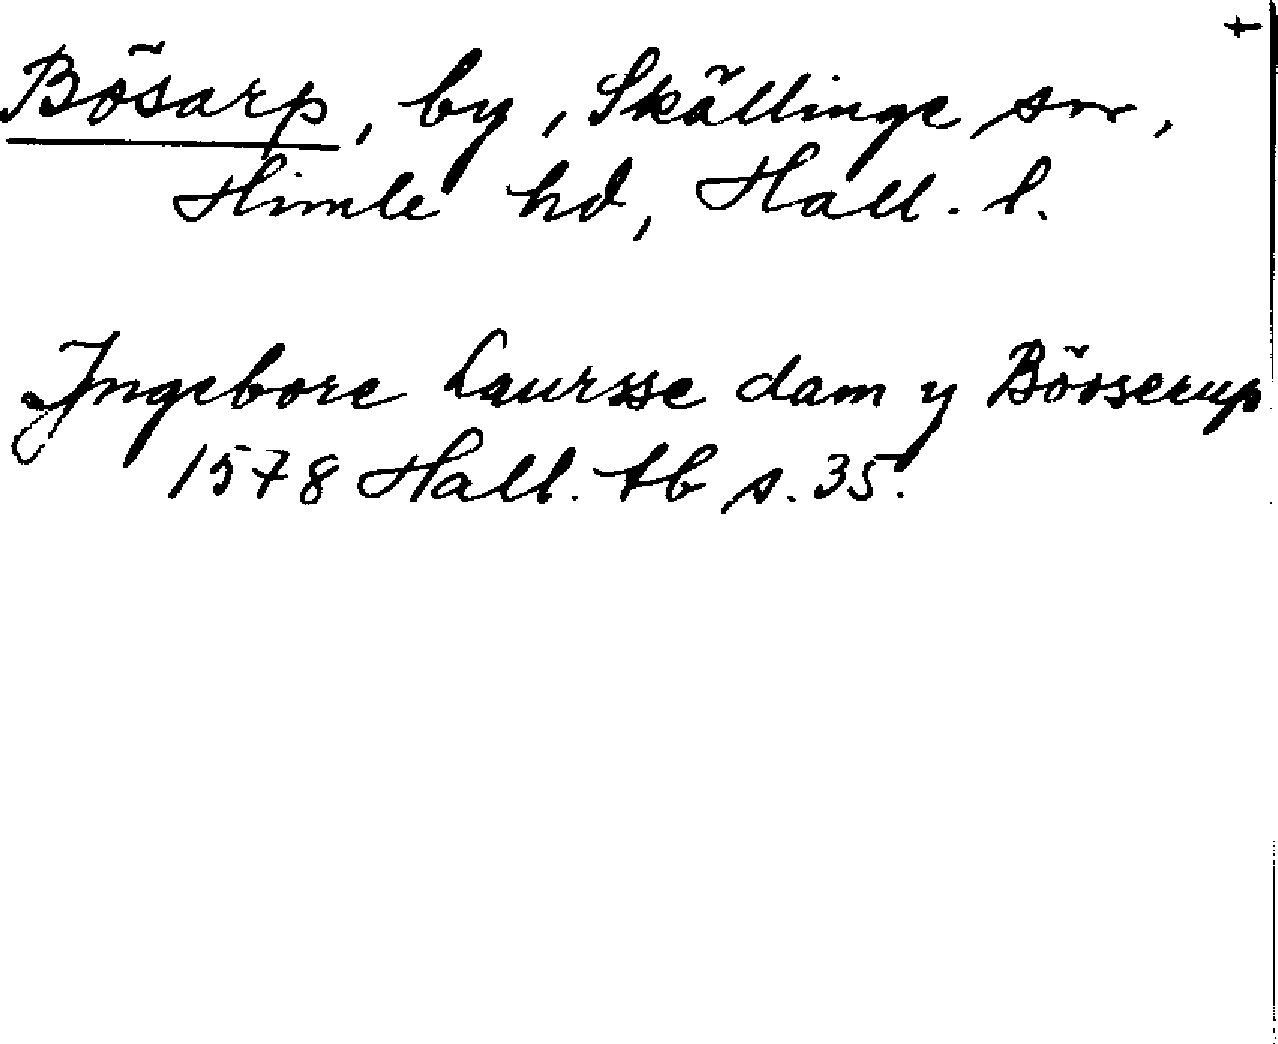 Bösarp, by, Skällinge sn,
Himle hd, Hall. l.
Ingebore Laursse dam y Böoserup
1578 Hall. tb s. 35.